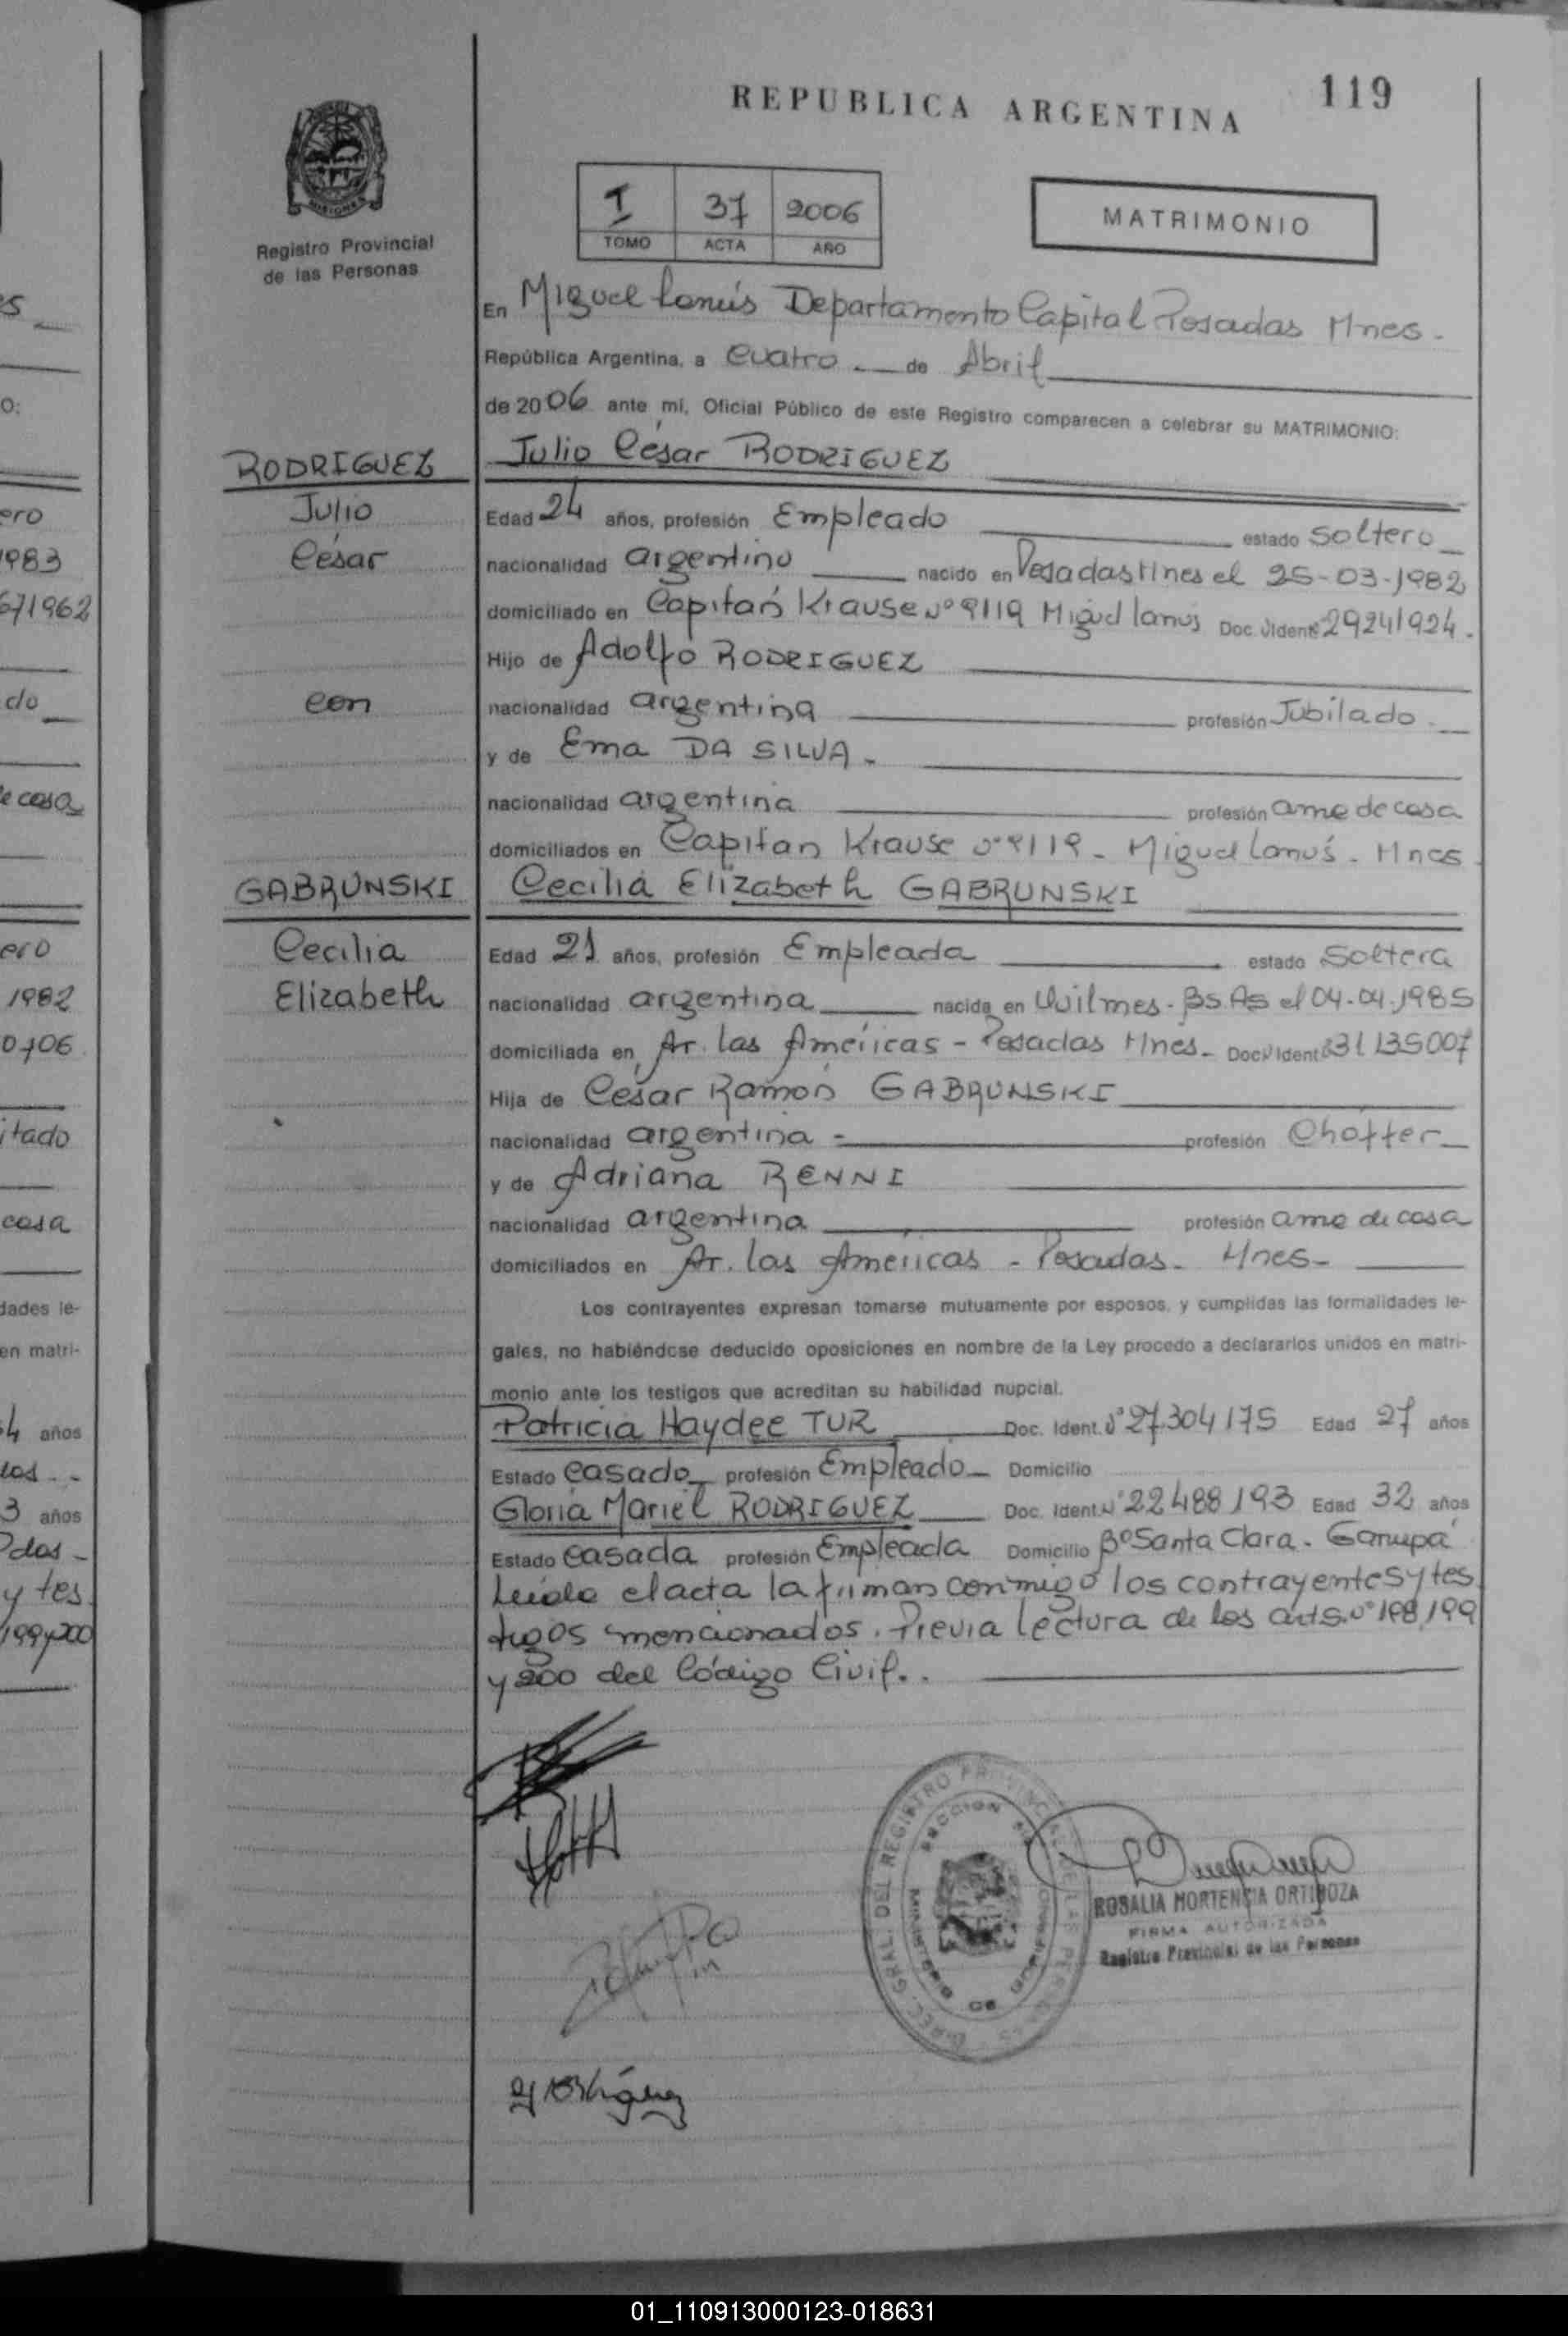 REPUBLICA ARGENTINA
119
Registro Provincial
de las Personas
I 37 2006
TOMO ACTA AÑO
MATRIMONIO
En Miguel Lanús Departamento Capital Posadas Mnes.
República Argentina, a Cuatro de Abril
de 2006 ante mí, Oficial Público de este Registro comparecen a celebrar su MATRIMONIO:
RODRIGUEZ
Julio
César
con
GABRUNSKI
Cecilia
Elizabeth
Julio César RODRIGUEZ
Edad 24 años, profesión Empleado estado Soltero
nacionalidad argentino nacido en Posadas Mnes el 25-03-1982
domiciliado en Capitán Krause Nº 9119 Miguel Lanús Doc. Ident. 29241924.
Hijo de Adolfo RODRIGUEZ
nacionalidad argentina profesión Jubilado
y de Ema DA SILVA.
nacionalidad argentina profesión ama de casa
domiciliados en Capitan Krause Nº 9119 - Miguel Lanús - Mnes
Cecilia Elizabeth GABRUNSKI
Edad 21 años, profesión Empleada estado Soltera
nacionalidad argentina nacida en Quilmes - Bs. As el 04-04-1985
domiciliada en Av. las Américas - Posadas Mnes. Doc. Ident. 31135007
Hija de César Ramón GABRUNSKI
nacionalidad argentina - profesión Choffer
y de Adriana RENNI
nacionalidad argentina profesión ama de casa
domiciliados en Av. las Américas - Posadas - Mnes-
Los contrayentes expresan tomarse mutuamente por esposos, y cumplidas las formalidades le-
gales, no habiéndose deducido oposiciones en nombre de la Ley procedo a declararlos unidos en matri-
monio ante los testigos que acreditan su habilidad nupcial.
Patricia Haydee TUR Doc. Ident. Nº 27.304175 Edad 27 años
Estado Casado profesión Empleado Domicilio
Gloria Mariel RODRIGUEZ Doc. Ident. Nº 22488193 Edad 32 años
Estado Casada profesión Empleada Domicilio Bº Santa Clara - Garupá
Leida el acta la firman conmigo los contrayentes y tes
tigos mencionados. Previa lectura de los arts. Nº 198, 199
y 200 del Código Civil.
ROSALIA HORTENCIA ORTIGOZA
FIRMA AUTORIZADA
Registro Provincial de las Personas
DIREC. GRAL. DEL REGISTRO PROVINCIAL DE LAS PERSONAS
es
O:
ero
1983
671962
do
de casa
ero
1982
0706
itado
casa
dades le-
en matri-
4 años
3 años
Pdas -
y tes
199 y 200
01_110913000123-018631